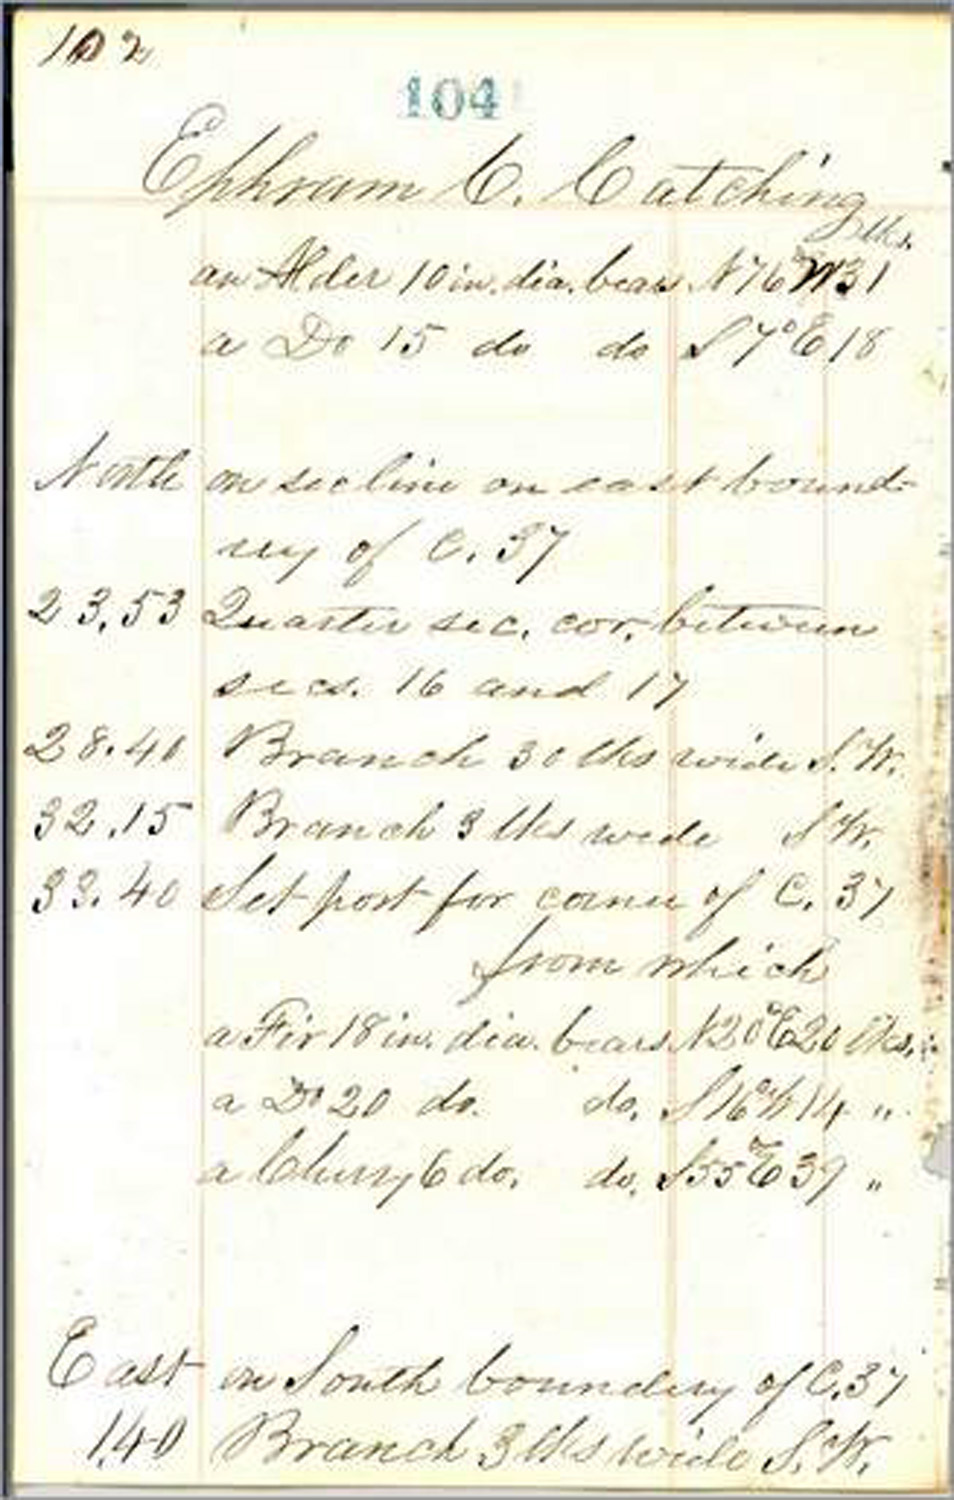 102
104
Ephram C. Catching
lks.
an Alder 10 in. dia. bears N 76° W 31
a Do 15 do do S 7° E 18
North on sec line on east bound-
ry of C. 37
23.53 Quarter sec. cor. between
secs. 16 and 17
28.40 Branch 30 lks wide S.W.
32.15 Branch 3 lks wide S.W.
33.40 Set post for corner of C. 37
from which
a Fir 18 in. dia. bears N 20° E 20 lks.
a Do 20 do. do. S 16° W 14 "
a Cherry 6 do. do. S 55° E 39 "
East on South boundry of C. 37
1.40 Branch 3 lks wide S.W.